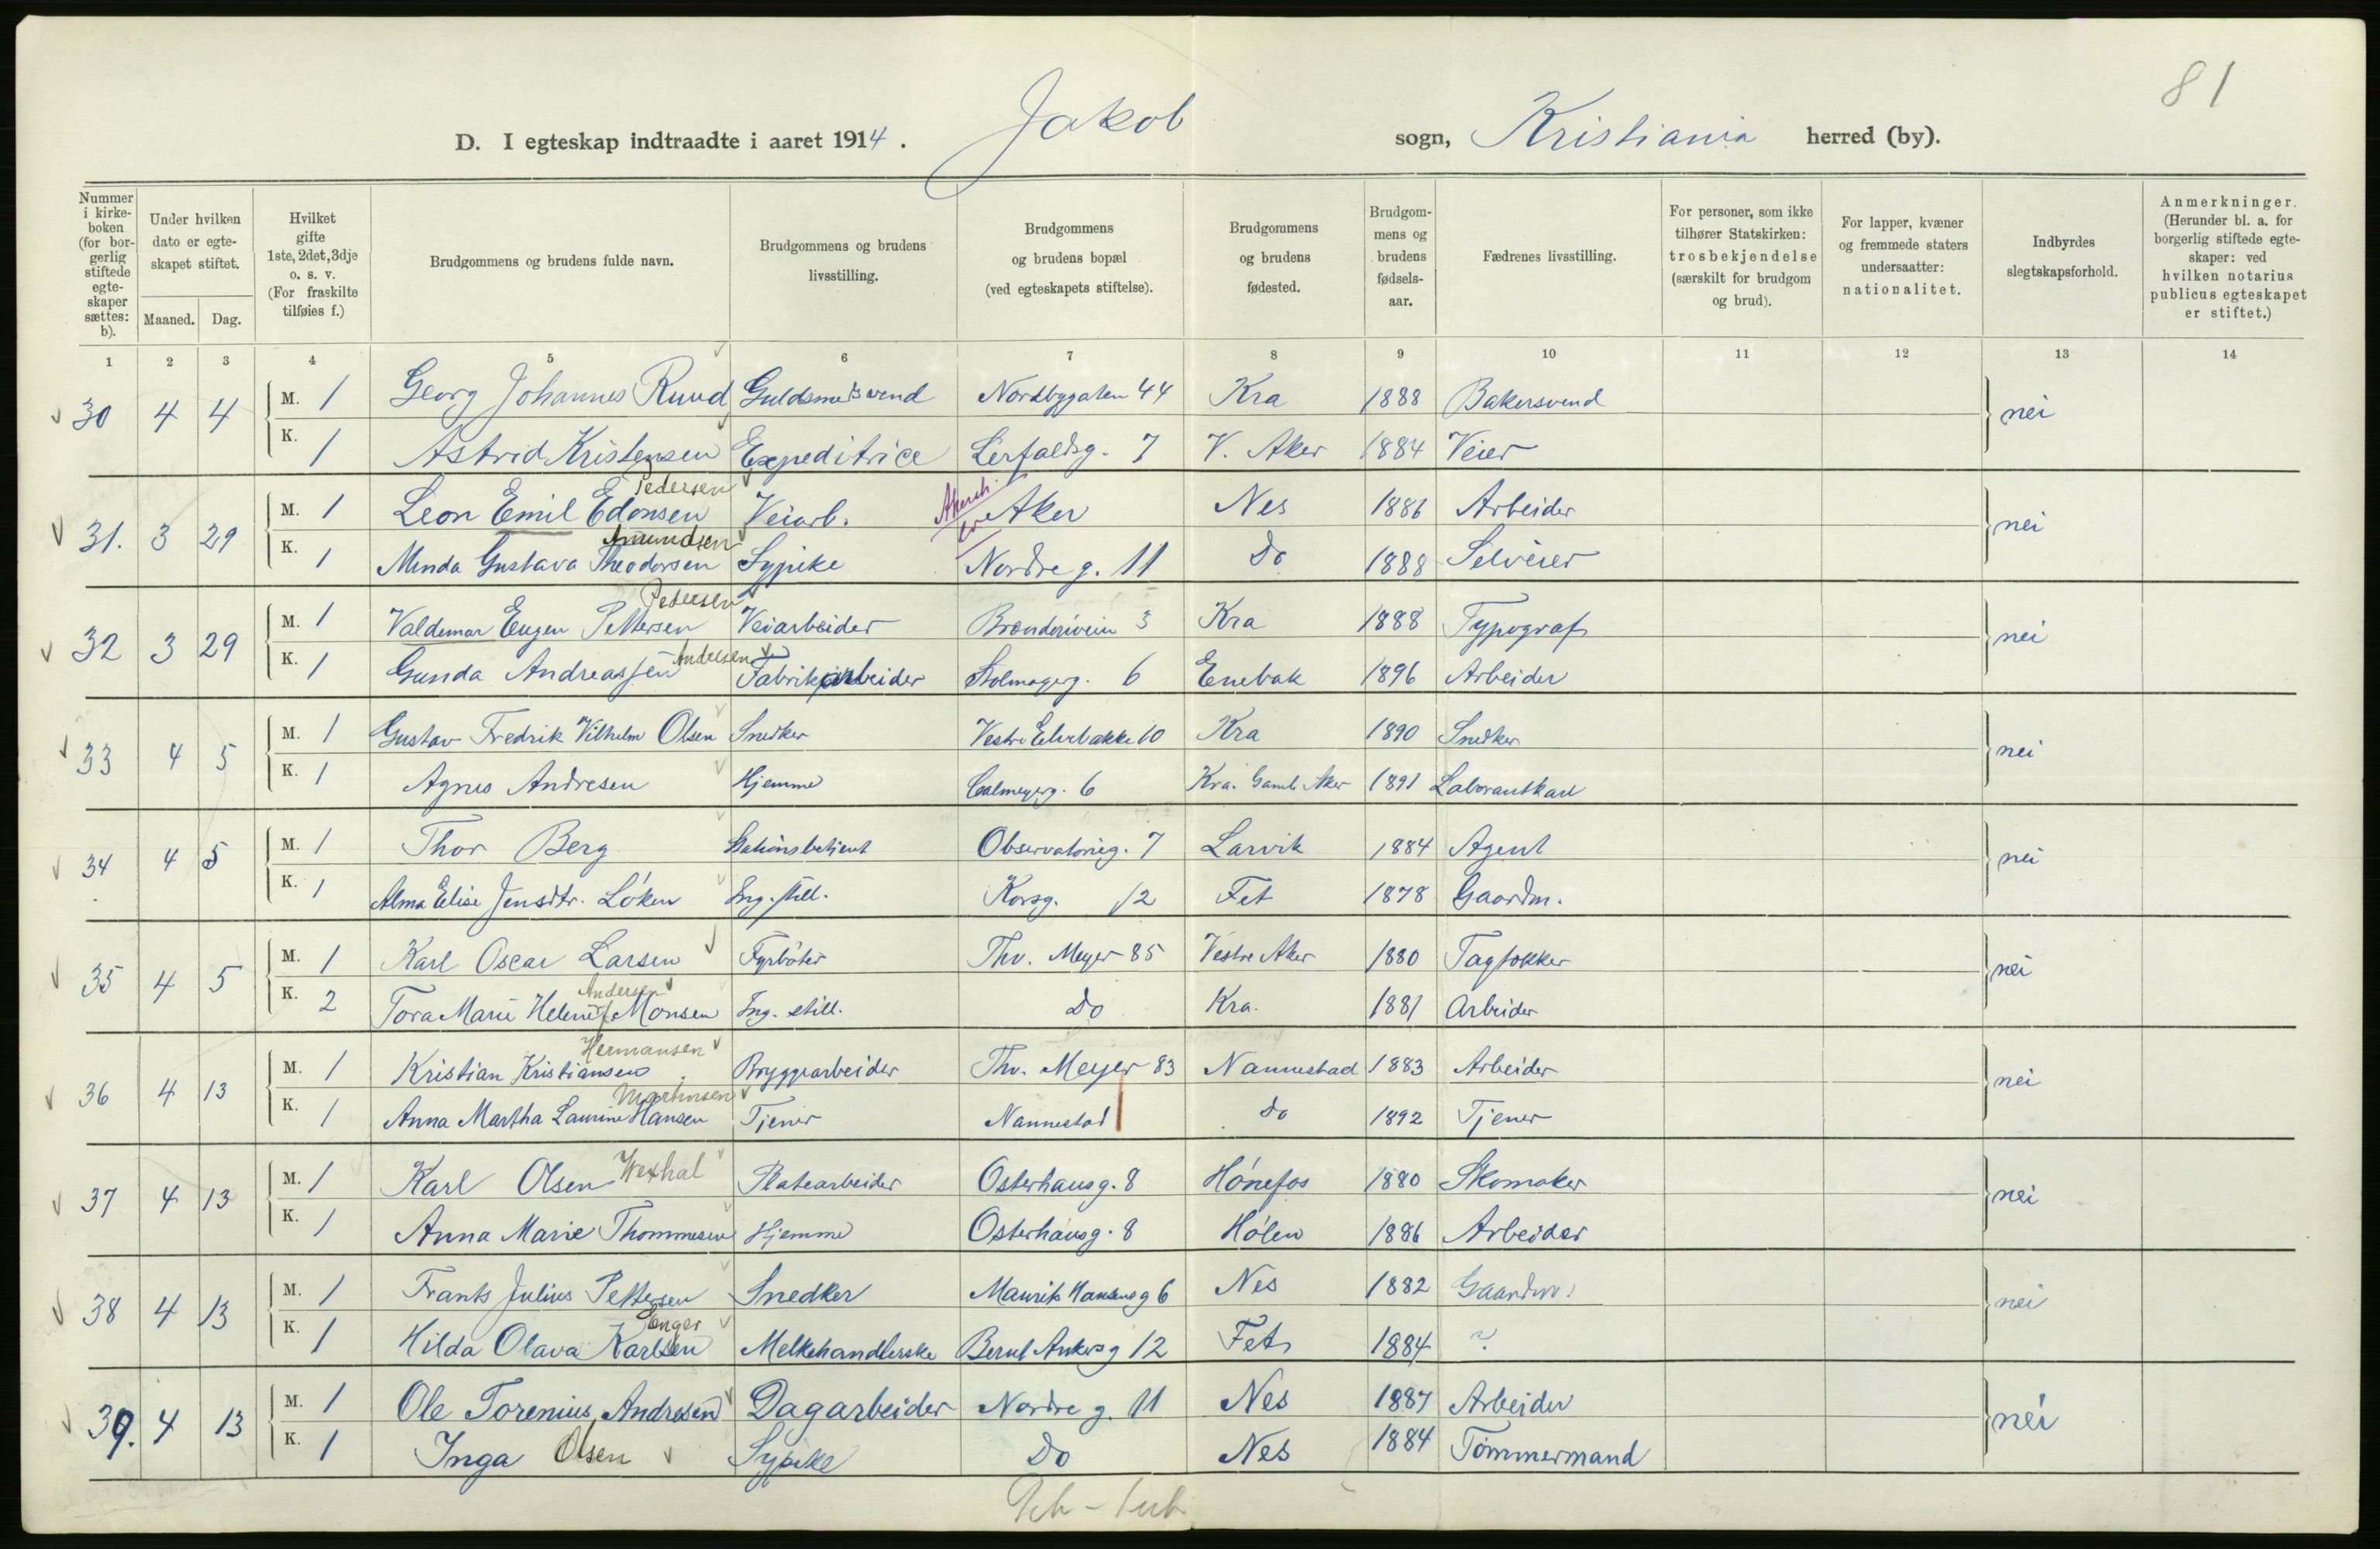 81
D. I egteskap indtraadte i aaret 1914. Jakob sogn, Kristiania herred (by).
Nummer i kirkeboken (for borgerlig stiftede egteskaper sættes: b).
Under hvilken dato er egteskapet stiftet.
Maaned. Dag.
Hvilket gifte 1ste, 2det, 3dje o. s. v. (For fraskilte tilføies f.)
Brudgommens og brudens fulde navn.
Brudgommens og brudens livsstilling.
Brudgommens og brudens bopæl (ved egteskapets stiftelse).
Brudgommens og brudens fødested.
Brudgommens og brudens fødselsaar.
Fædrenes livsstilling.
For personer, som ikke tilhører Statskirken: trosbekjendelse (særskilt for brudgom og brud).
For lapper, kvæner og fremmede staters undersaatter: nationalitet.
Indbyrdes slegtskapsforhold.
Anmerkninger. (Herunder bl. a. for borgerlig stiftede egteskaper: ved hvilken notarius publicus egteskapet er stiftet.)
1 2 3 4 5 6 7 8 9 10 11 12 13 14
30 4 4 M. 1 Georg Johannes Ruud Guldsmedsvend Nordbygaten 44 Kra 1888 Bakersvend nei
K. 1 Astrid Kristensen Expeditrice Lerfaldsg. 7 V. Aker 1884 Veier
Pedersen
31. 3 29 M. 1 Leon Emil Edonsen Veiarb. Aker Nes 1886 Arbeider nei
Amundsen
K. 1 Minda Gustava Theodorsen Sypike Nordre g. 11 Do 1888 Selveier
Pedersen
32 3 29 M. 1 Valdemar Eugen Pettersen Veiarbeider 3 Kra 1888 Typograf nei
Andersen
K. 1 Gunda Andreassen Fabrikarbeider Stolmagerg. 6 Enebak 1896 Arbeider
33 4 5 M. 1 Gustav Fredrik Vilhelm Olsen Snedker Vestre Elvebakke 10 Kra 1890 Snedker nei
K. 1 Agnes Andresen Hjemme Calmeyerg. 6 Kra. Gamle Aker 1891 Laborantkarl
34 4 5 M. 1 Thor Berg Stationsbetjent Observatorieg. 7 Larvik 1884 Agent nei
K. 1 Alma Elise Jensdtr. Löken Ing. still. Korsg. 12 Fet 1878 Gaardm.
35 4 5 M. 1 Karl Oscar Larsen Fyrböter Thv. Meyer 85 Vestre Aker 1880 Tagtækker nei
Andersen
K. 2 Tora Marie Helene f Monsen Ing. still. Do Kra. 1881 Arbeider
Hermansen
36 4 13 M. 1 Kristian Kristiansen Bryggearbeider Thv. Meyer 83 Nannestad 1883 Arbeider nei
Martinsen
K. 1 Anna Martha Laurine Hansen Tjener Nannestad Do 1892 Tjener
37 4 13 M. 1 Karl Olsen Wexhal Platearbeider Osterhausg. 8 Hönefos 1880 Skomaker nei
K. 1 Anna Marie Thommesen Hjemme Osterhausg. 8 Hölen 1886 Arbeider
38 4 13 M. 1 Frants Julius Pettersen Snedker Maurits Hansens g 6 Nes 1882 Gaardm. nei
Enger
K. 1 Hilda Olava Karlsen Melkehandlerske Bernt Ankers g 12 Fet 1884 ?
39. 4 13 M. 1 Ole Torenius Andresen Dagarbeider Nordre g. 11 Nes 1887 Arbeider nei
K. 1 Inga Olsen Sypike Do Nes 1884 Tömmermand